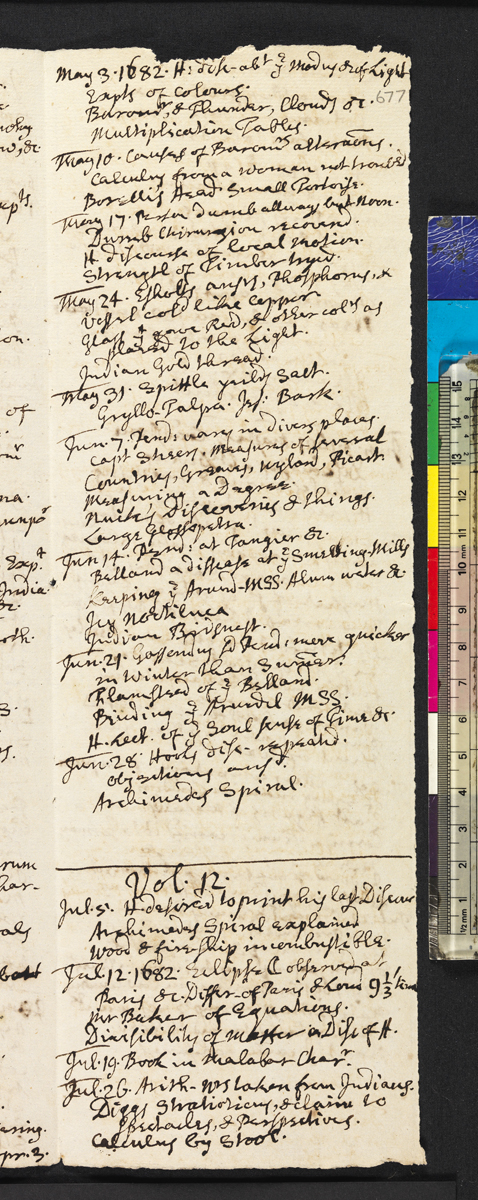 May 3. 1682. H: disc- abt ye Modus & of Light
Expts of Colours.
Baromr, & Thunder, Clouds &c.
677
Multiplication Tables.
May 10. Causes of Baromr alteraons.
Calculus from a Woman not troubled
Borellis Head Small Tortoise.
May 17. Person dumb allways but Noon.
Dumb Chirurgion recovered.
H discourse of local motion.
Strength of Timber tryed.
May 24. Esholts ansrs, Phosphorus, &
Vessel cold like Copper
Glass yt gave Red, & other cols as
placed to the Light.
Indian Gold thread.
May 31. Spittle yeilds Salt.
Gryllo-Talpa. Jes: Bark.
Jun. 7. Pend: vary in divers places.
Capt Streets. Measures of several
Countries, Greaves, Picart
Measuring a Degree.
Nucks Discoveries & things.
Large Glossopetra.
Jun 14. Pend: at Tangier &c.
Belland a disease at ye Smelting-Mills
Keeping ye Arund-MSS. Alum water &c.
Noctiluca
Indian Birdsnest.
Jun. 21. Gassendus sd Pend: move quicker
in Winter than Summer.
Flamsteed of ye Belland.
Binding ye Arundel MSS.
H. Lect. of ye Soul sense of Time &c.
Jun. 28. Hooks disc- repeated.
Objections ansd.
Archimedes Spiral.
Vol. 12.
Jul. 5. H desired to print his last Discour
Archimedes Spiral explained
Wood & fire-ship incombustible.
Jul. 12. 1682. Eclipse ☾ observed at
Paris &c. Differ- of Paris & Lond 9 1/3'
Mr Baker of Equations.
Divisibility of Matter a Disc of H.
Jul. 19. Book in Malabar Charr.
Jul. 26. Arith- ws taken from Indians.
Diggs Stratioticus, & claim to
Spectacles, & Perspectives.
Calculus by Stool.